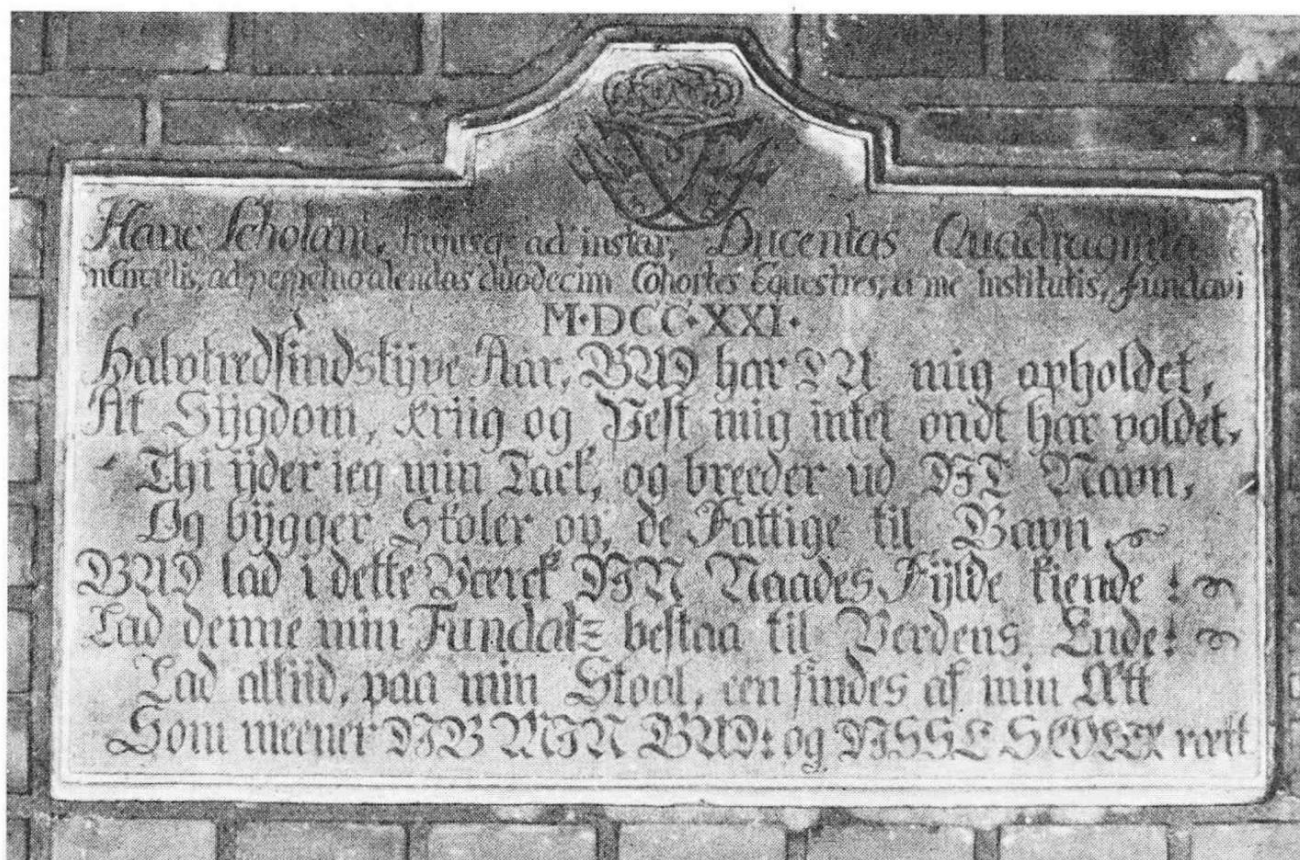 Hanc Scholam, hujusq; ad instar, Ducentas Quadraginta
in Circulis, ad perpetuo alendas duodecim Cohortes Equestres, a me Institutis, fundavi
M·DCC·XXI·
Halvtredsindstÿve Aar, GUD har DU mig opholdet,
At Sÿgdom, Kriig og Pest mig intet ondt har voldet,
Thi ÿder ieg min Tack, og breeder ud DIT Navn,
Og bÿgger Skoler op, de Fattige til Gavn
GUD lad i dette Værck DIN Naades Fÿlde kiende !
Lad denne min Fundatz bestaa til Verdens Ende!
Lad altiid, paa min Stool, een findes af min Ætt
Som meener DIG MIN GUD: og DISSE SCOLER rætt